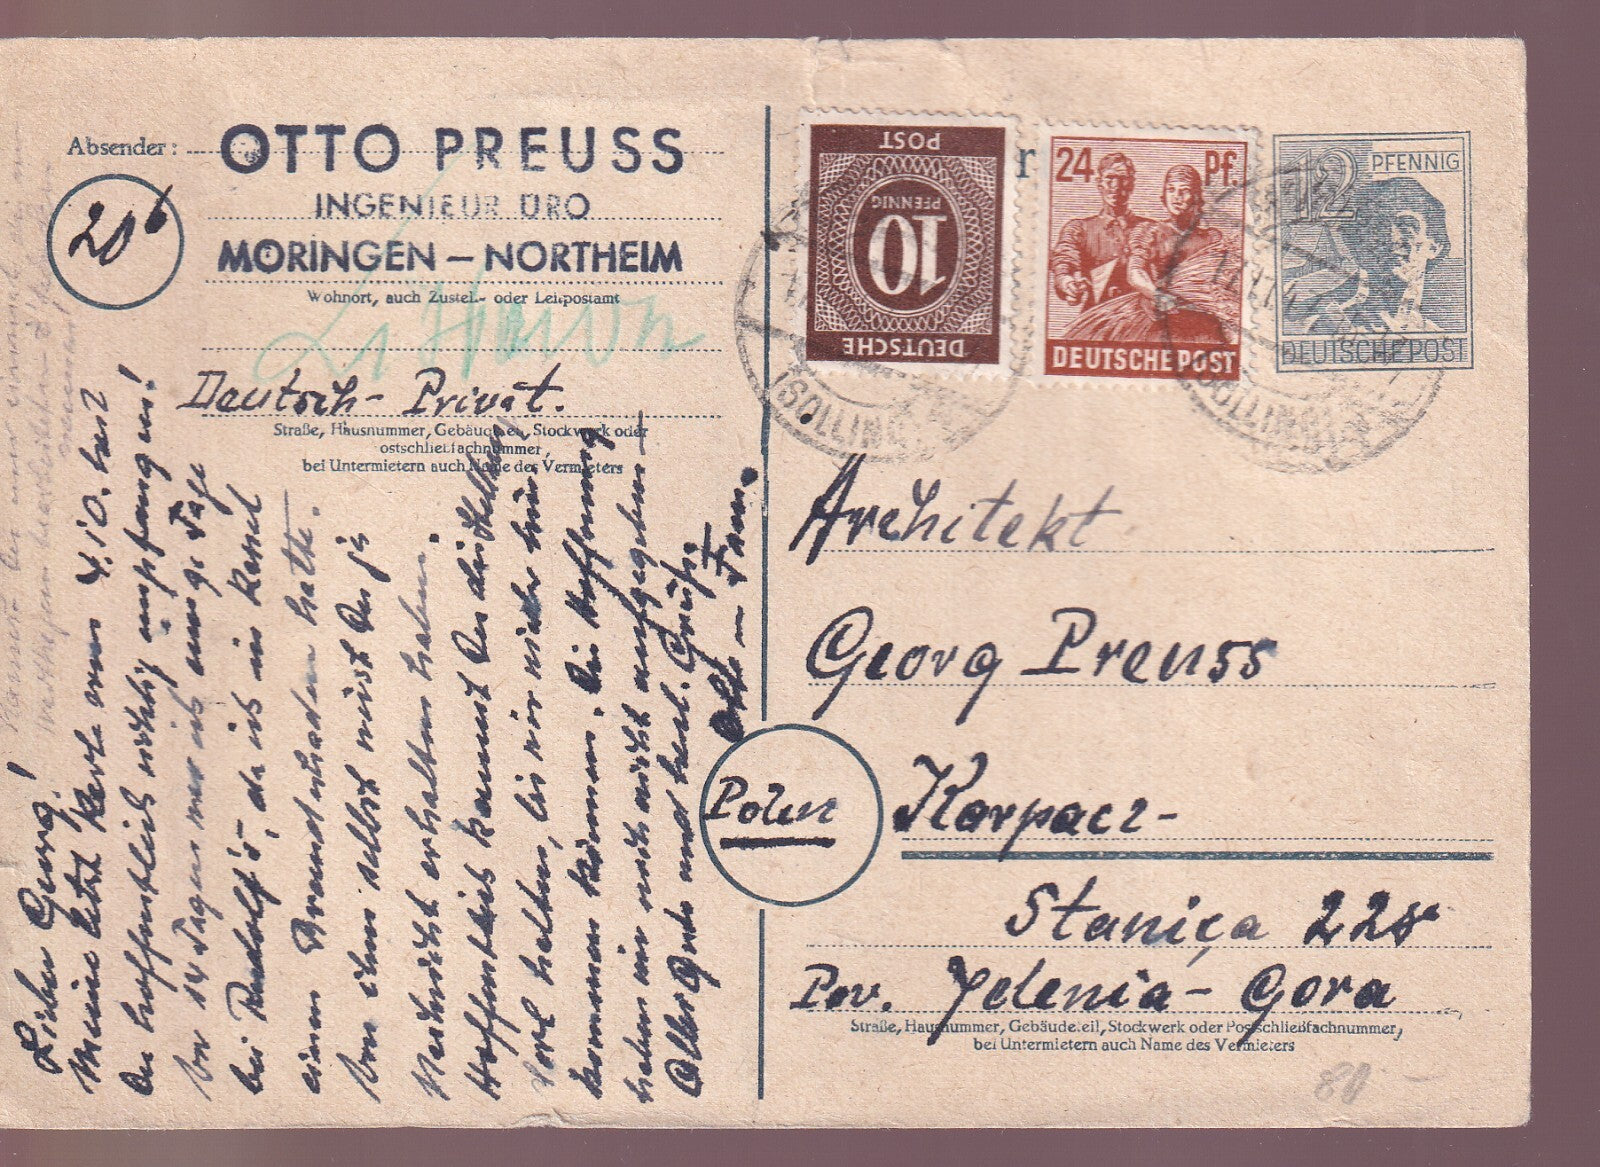 Absender:
OTTO PREUSS
INGENIEUR ÜRO
MORINGEN – NORTHEIM
20b
Wohnort, auch Zustell- oder Leitpostamt
Deutsch- Privat.
Straße, Hausnummer, Gebäudeteil, Stockwerk oder
ostschließfachnummer,
bei Untermietern auch Name des Vermieters
POST
10
PFENNIG
DEUTSCHE
24 Pf.
DEUTSCHE POST
12 PFENNIG
DEUTSCHE POST
(SOLLING)
(SOLLING)
r
Architekt
Georg Preuss
Polen
Karpacz-
Staniça 22a
Pov. Jelenia- Gora
Straße, Hausnummer, Gebäudeteil, Stockwerk oder Postschließfachnummer,
bei Untermietern auch Name des Vermieters
80 –
Lieber Georg!
Meine letzte Karte vom 4.10. hast
Du hoffentlich richtig empfangen!
Vor 14 Tagen war ich einige Tage
bei Rudolf's, da ich in Kassel
einen Brandschaden hatte.
Von ihm selbst wirst Du ja
Nachricht erhalten haben.
Hoffentlich kannst Du die Stellung
dort halten, bis wir wieder hin
kommen können. Die Hoffnung
haben wir noch nicht aufgegeben –
Alles Gute und herzl. Grüße
Otto – u Fam.